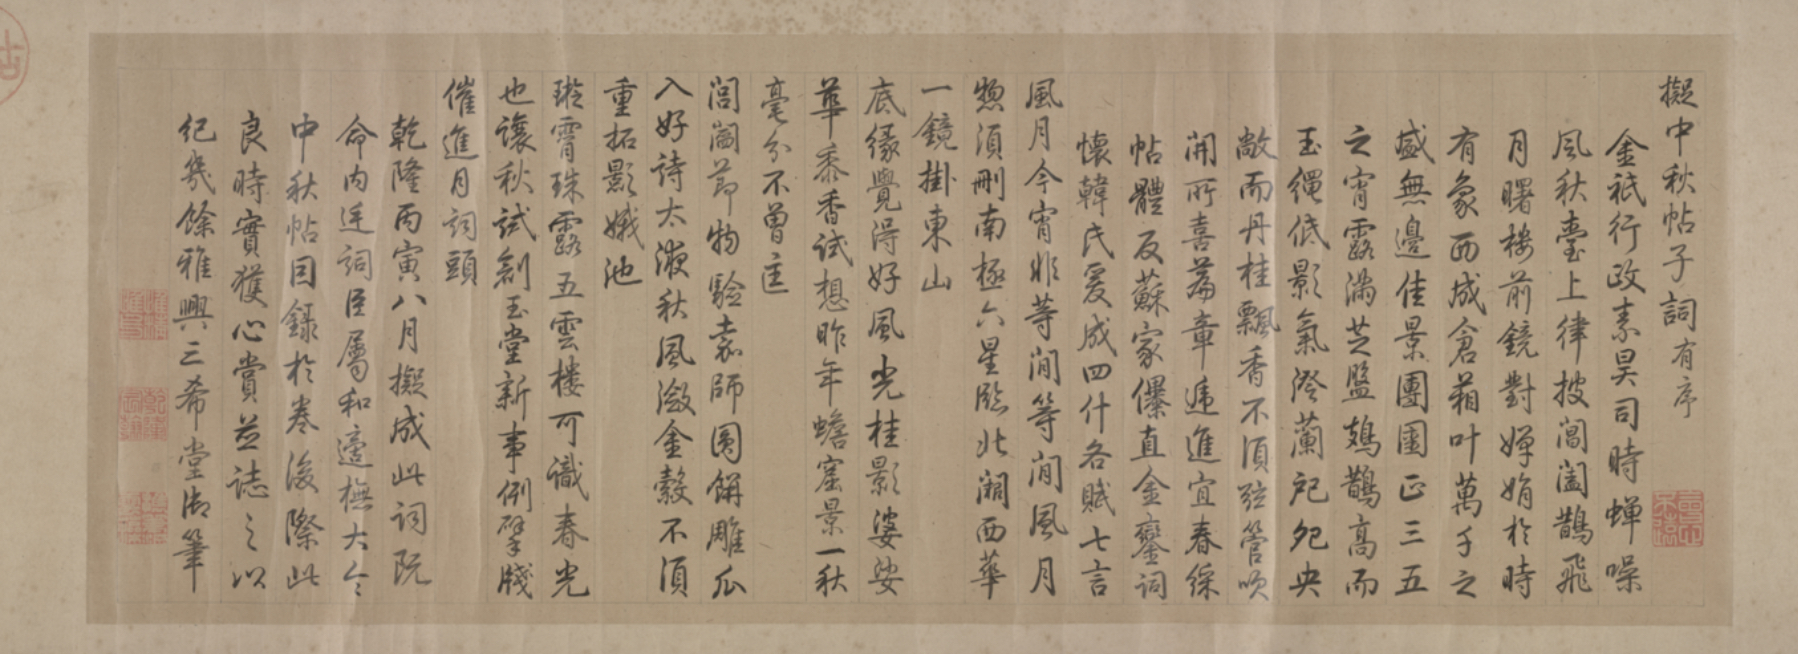 擬中秋帖子詞有序
金祇行政素昊司時蟬噪
風秋臺上律披閶闔鵲飛
月曙樓前鏡對嬋娟於時
有象西成倉箱叶萬千之
盛無邊佳景團圞正三五
之宵露滿芝盤鳷鵲高而
玉繩低影氣澄蘭戺央
敞而丹桂飄香不須弦管吹
開所喜篇章遞進宜春綵
帖體反蘇家儤直金鑾詞
懷韓氏爰成四什各賦七言
風月今宵非等閒等閒風月
揔須刪南極六星臨北澗西華
一鏡掛東山
底緣覺得好風光桂影婆娑
華黍香試想昨年蟾窟景一秋
毫分不曾
閶闔節物驗嘉師圓餅雕瓜
入好詩太液秋風瀲金縠不須
重拓影娥池
璇霄珠露五雲樓可識春光
也讓秋試劍玉堂新事例擘牋
催進月詞頭
乾隆丙寅八月擬成此詞既
命內廷詞臣屬和適撫大令
中秋帖因錄於卷後際此
良時實獲心賞並誌之以
紀幾餘雅興三希堂御筆